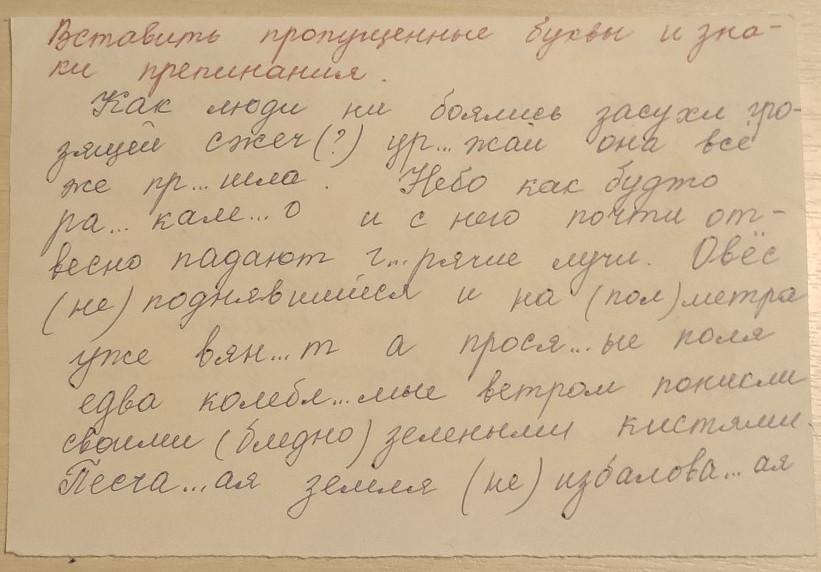 Вставить пропущенные буквы и зна-
ки препинания.
Как люди ни боялись засухи гро-
зящей сжеч(?) ур...жай она всё
же пр...шла. Небо как будто
ра...кале...о и с него почти от-
весно падают г...рячие лучи. Овёс
(не) поднявшийся и на (пол)метра
уже вян...т а прося...ые поля
едва колебл...мые ветром поникли
своими (бледно) зелеными кистями.
Песча...ая земля (не) избалова...ая